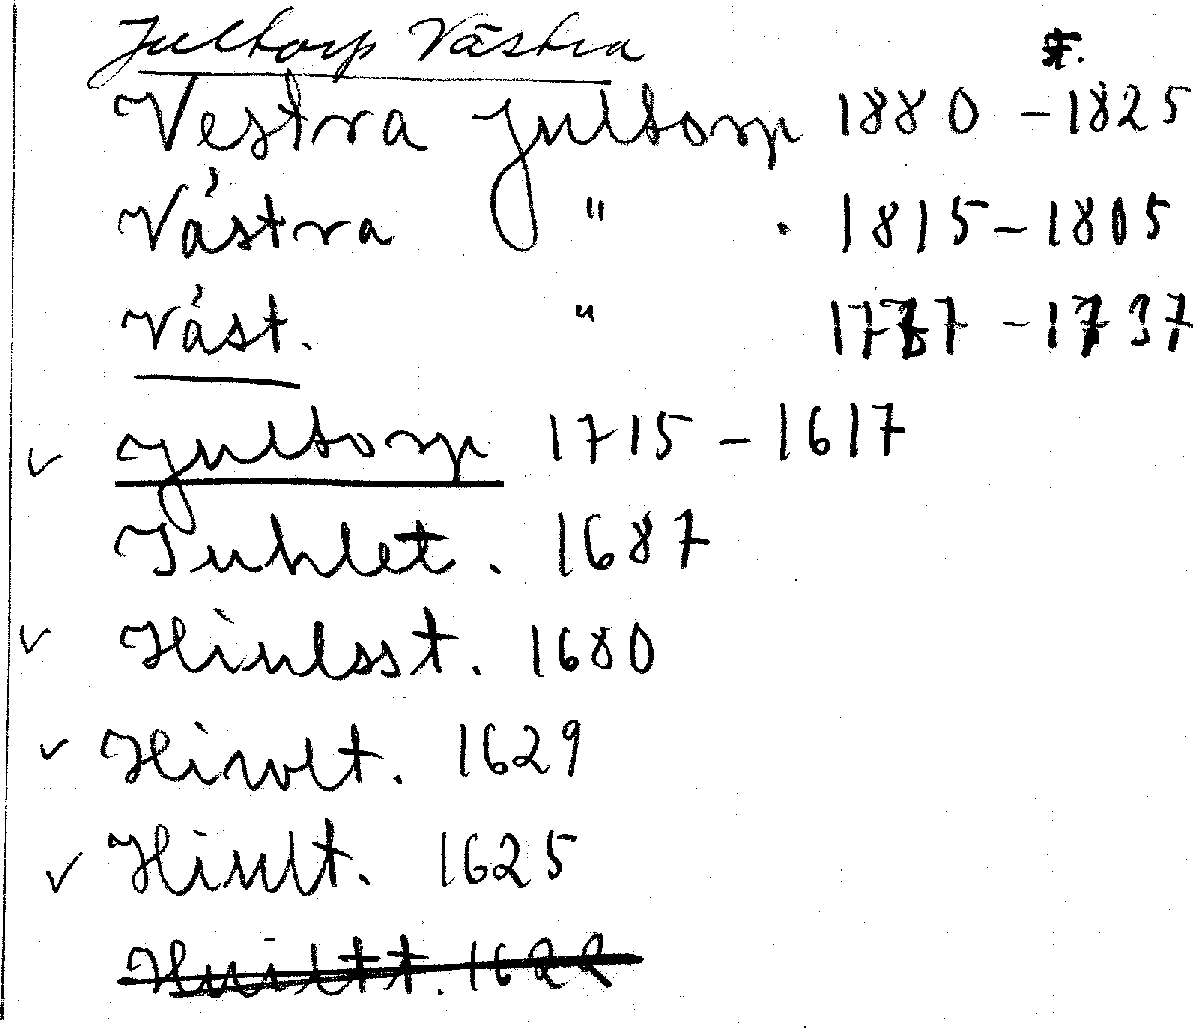 Jultorp Västra
F.
Vestra Jultorp 1880 - 1825
Västra " . 1815 - 1805
Väst. " 1777 - 1737
✓ Jultorp 1715 - 1617
Juhlet. 1687
✓ Hiulsst. 1680
✓ Hiwlt. 1629
✓ Hiult. 1625
1622